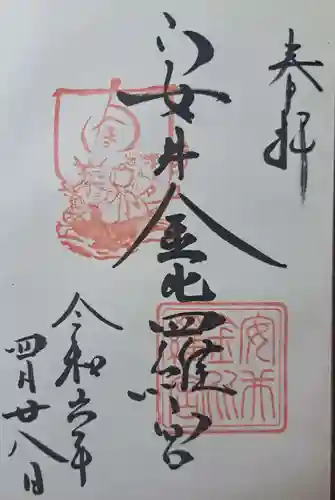 奉拝
安井金比羅宮
令和六年
四月廿八日